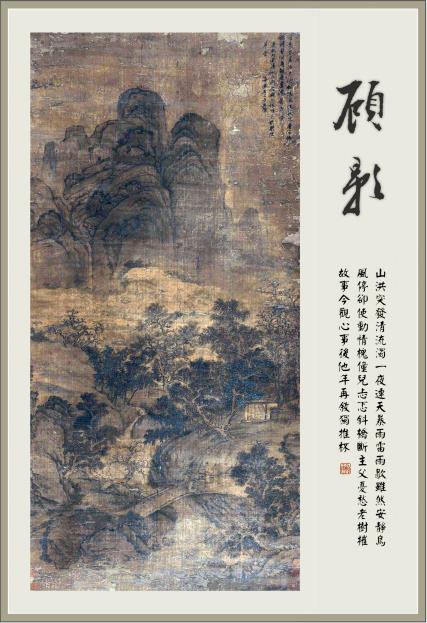 顾影
山洪突發清流濁一夜連天暴雨雷雨歇雖然安靜鳥
風停卻使動情槐僮兒忐忑斜橋斷主父憂愁老樹摧
故事今觀心事後他年再敘獨推杯